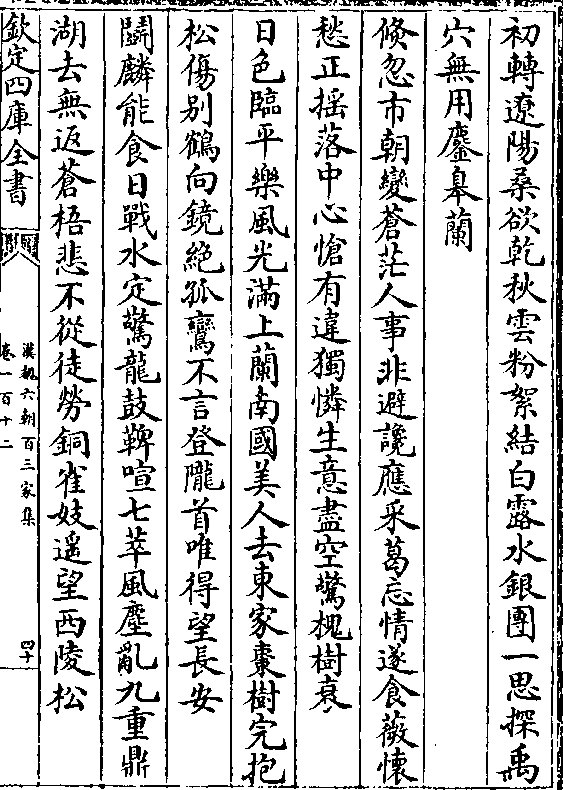 初轉遼陽桑欲乾秋雲粉絮結白露水銀團一思探禹
穴無用鏖臯蘭
倐忽市朝變蒼茫人事非避讒應采葛忘情遂食薇懷
愁正揺落中心愴有違獨憐生意盡空驚槐樹衰
日色臨平樂風光滿上蘭南國美人去東家棗樹完抱
松傷别鶴向鏡絶孤鸞不言登隴首唯得望長安
鬬麟能食日戰水定驚龍鼓鞞喧七萃風塵亂九重鼎
湖去無返蒼梧悲不從徒勞銅雀妓遥望西陵松
欽定四庫全書
漢魏六朝百三家集
卷一百十二
四十